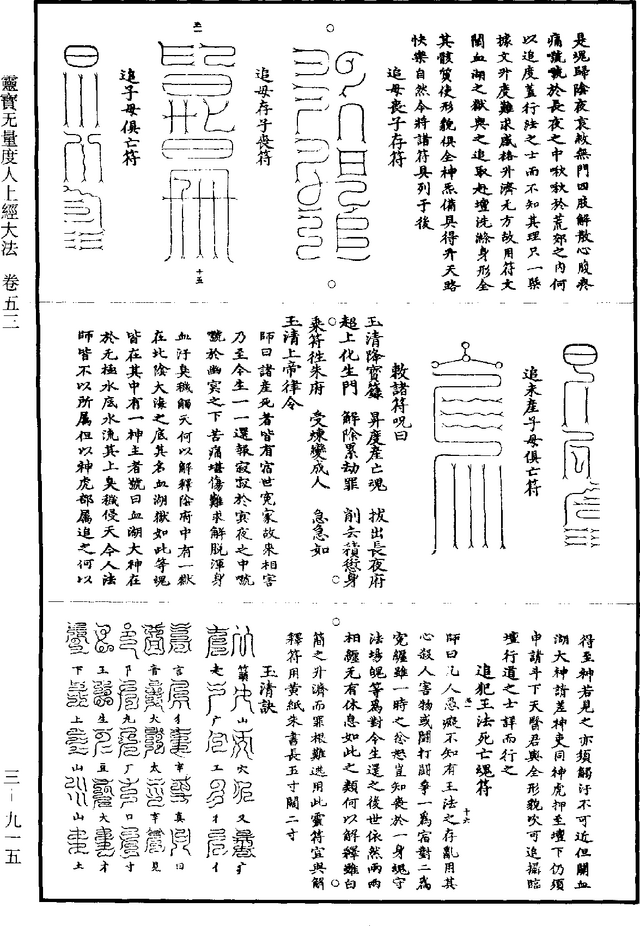 靈寶无量度人上經大法　卷五三
三－九一五
是魂歸陰夜哀救無門四肢解散心腹疼
痛號號於長夜之中啾啾於荒郊之內何
以追度蓋行法之士而不知其理只一槩
據文升度難求感格升濟无方故用符文
開血湖之獄與之追取赴壇洗滌身形全
其骸質使形貌俱全神炁備具得升天路
快樂自然今將諸符具列于後
追母喪子存符
追母存子喪符
追子母俱亡符
十五
追未產子母俱亡符
敕諸符呪曰
玉清降寶籙　昇度產亡魂　拔出長夜府
超上化生門　解除累劫罪　削去積愆身
乘符徃朱府　受煉變成人　急急如
玉清上帝律令
師曰諸產死者皆有宿世冤家故來相害
乃至今生一一還報寂寂於冥夜之中號
號於幽冥之下苦痛堪傷難求解脫渾身
血汙臭穢觸天何以解釋陰府中有一獄
在北陰大海之底其名血湖獄如此等魂
皆在其中有一神主者號曰血湖大神在
於无極水底水流其上臭穢侵天令人法
師皆不以所屬但以神虎部屬追之何以
得至神若見之亦須觸汙不可近但關血
湖大神請差神吏同神虎押至壇下仍須
申請斗下天醫君與全形貌吹可追攝臨
壇行道之士詳而行之
追犯王法死亡魂符
十六
師曰凡人愚癡不知有王法之存亂用其
心殺人害物或鬪打鬪爭一爲宿對二爲
冤纏雖一時之忿怒豈知喪於一身魂守
法場魄等爲對今生還之後世依然兩兩
相纏无有休息如此之類何以解釋雖白
簡之升濟而罪根難逃用此靈符宜與解
釋符用黃紙朱書長五寸闊二寸
玉清訣